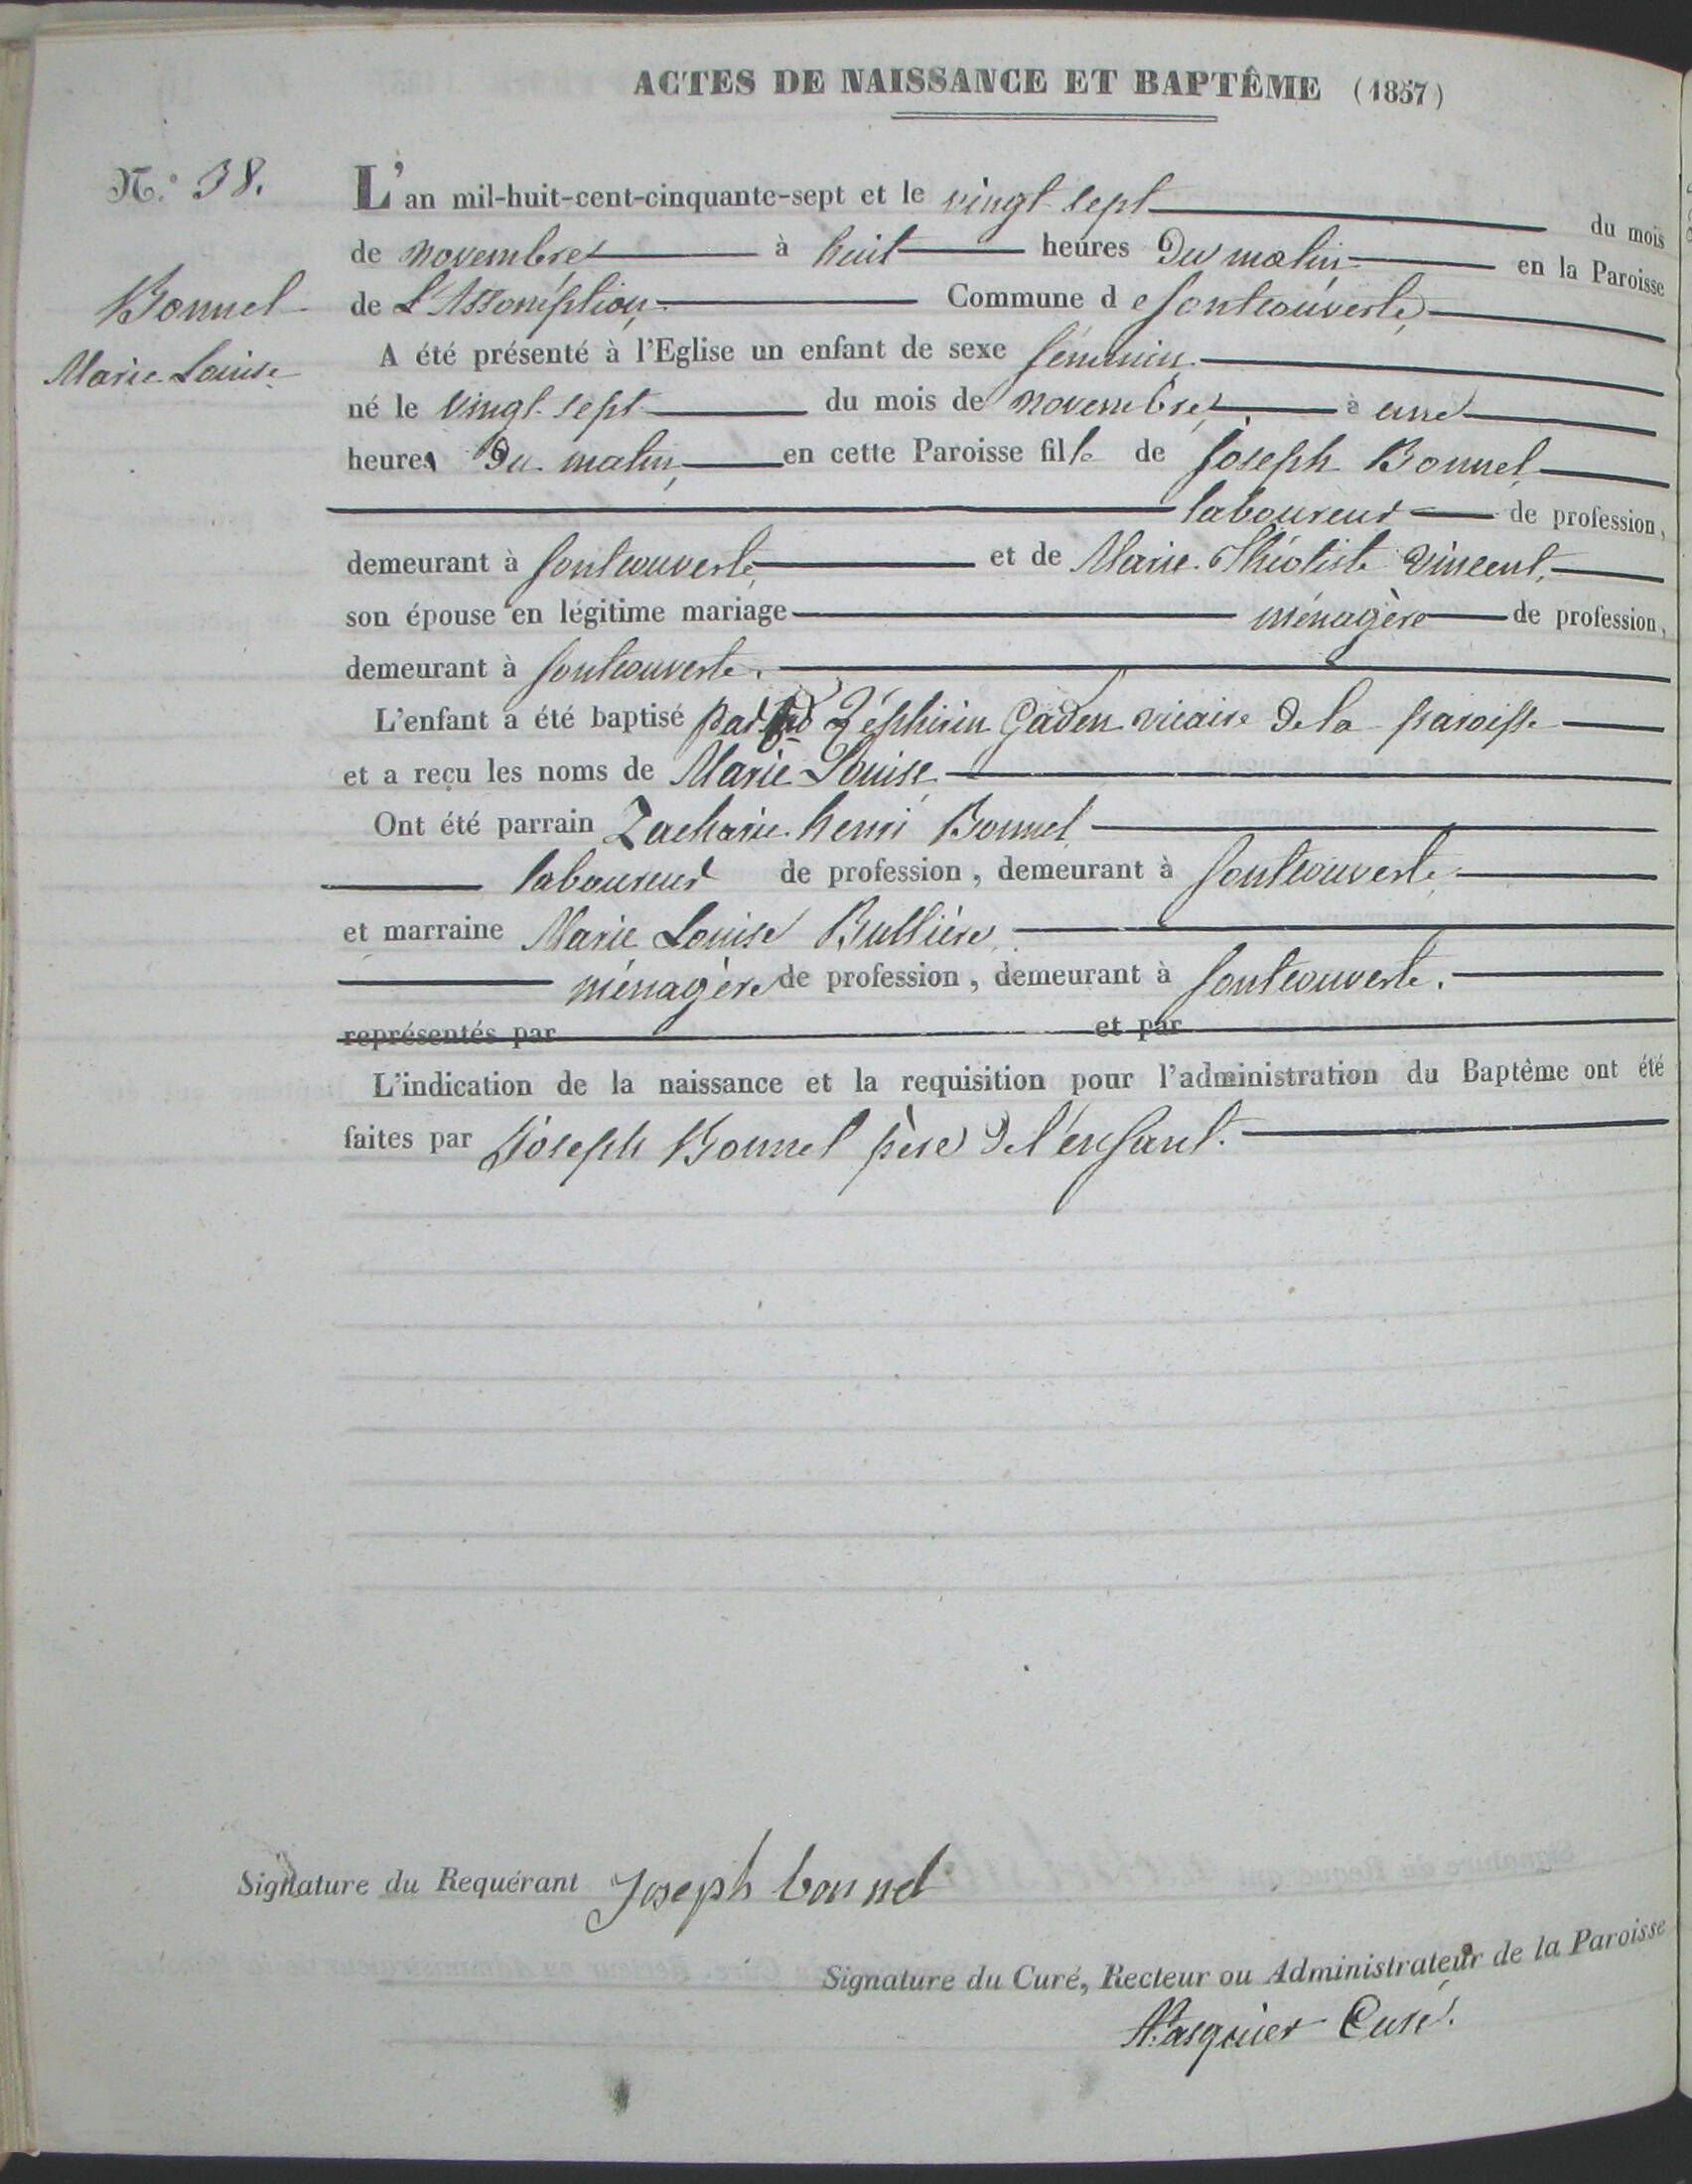 ACTES DE NAISSANCE ET BAPTÊME (1857)
N.° 38.
Bonnel
Marie Louise
L'an mil-huit-cent-cinquante-sept et le vingt sept du mois
de novembre à huit heures du matin en la Paroisse
de L'Assomption, Commune de fontcouverte,
A été présenté à l'Eglise un enfant de sexe féminin
né le vingt-sept du mois de novembre, à une
heures du matin, en cette Paroisse fille de Joseph Bonnel
laboureur de profession,
demeurant à fontcouverte, et de Marie Théotiste Vincent,
son épouse en légitime mariage ménagère de profession,
demeurant à fontcouverte.
L'enfant a été baptisé par Zéphirin Gaden vicaire de la paroisse
et a reçu les noms de Marie Louise
Ont été parrain Zacharie henri Bonnel
laboureur de profession, demeurant à fontcouverte
et marraine Marie Louise Bullière
ménagère de profession, demeurant à fontcouverte.
représentés par et par
L'indication de la naissance et la requisition pour l'administration du Baptême ont été
faites par Joseph Bonnel père de l'enfant.
Signature du Requérant Joseph bonnel
Signature du Curé, Recteur ou Administrateur de la Paroisse
Curé.